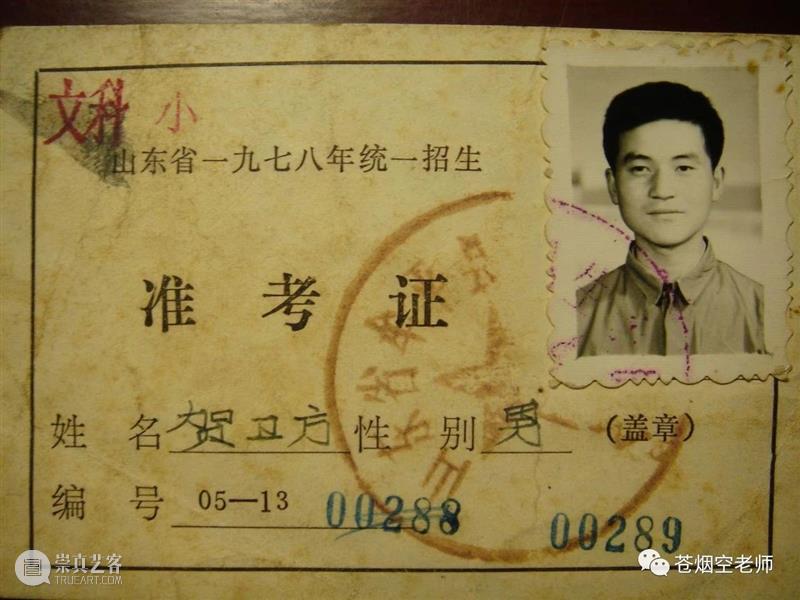 文科 小
山东省一九七八年统一招生
准考证
姓名 贺卫方 性别 男 (盖章)
编号 05—13 00288 00289
崇真艺客
TRUEART.COM
苍烟空老师